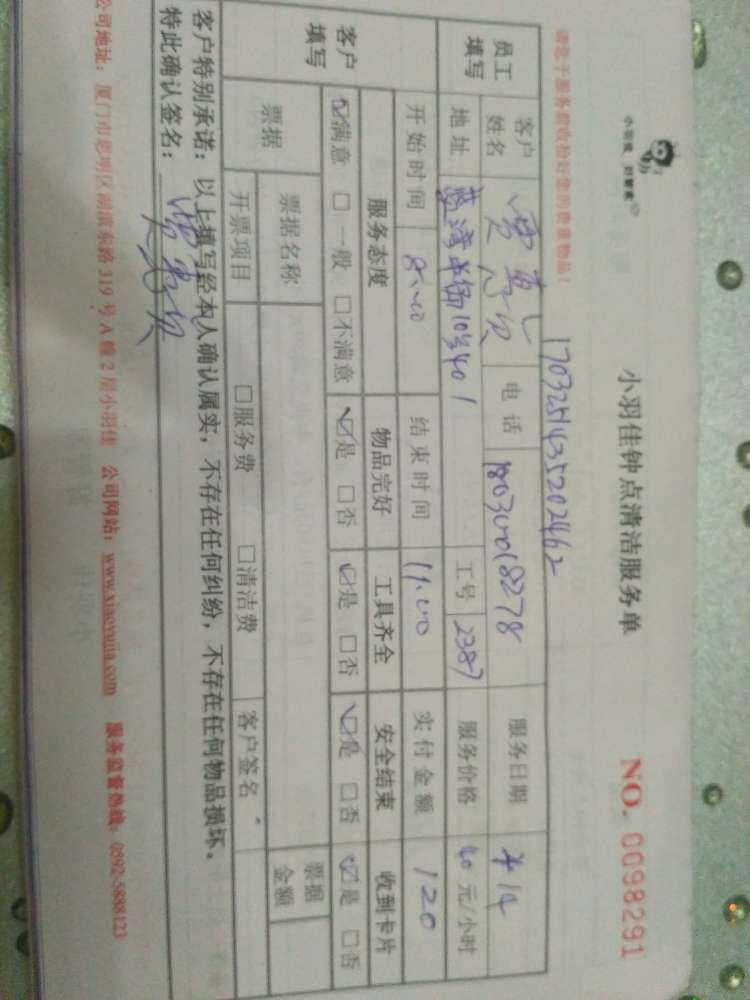 小羽佳 白管家
小羽佳钟点清洁服务单 NO. 0098291
请您于服务前收拾好您的贵重物品！
1703251435202462
员工填写 客户姓名 电话 18030018278 服务日期 4.14
地址 10号401 工号 2387 服务价格 40 元/小时
开始时间 8:00 结束时间 11:00 实付金额 120
客户填写 服务态度 物品完好 工具齐全 安全结束 收到卡片
☑满意 □一般 □不满意 ☑是 □否 ☑是 □否 ☑是 □否 ☑是 □否
票据 票据名称 票据金额
开票项目 □服务费 □清洁费 客户签名
客户特别承诺：以上填写经本人确认属实，不存在任何纠纷，不存在任何物品损坏。
特此确认签名：
公司地址：厦门市思明区湖滨东路 319 号 A 幢 2 层小羽佳 公司网站：www.xiaoyujia.com 服务监督热线：0592-5888123